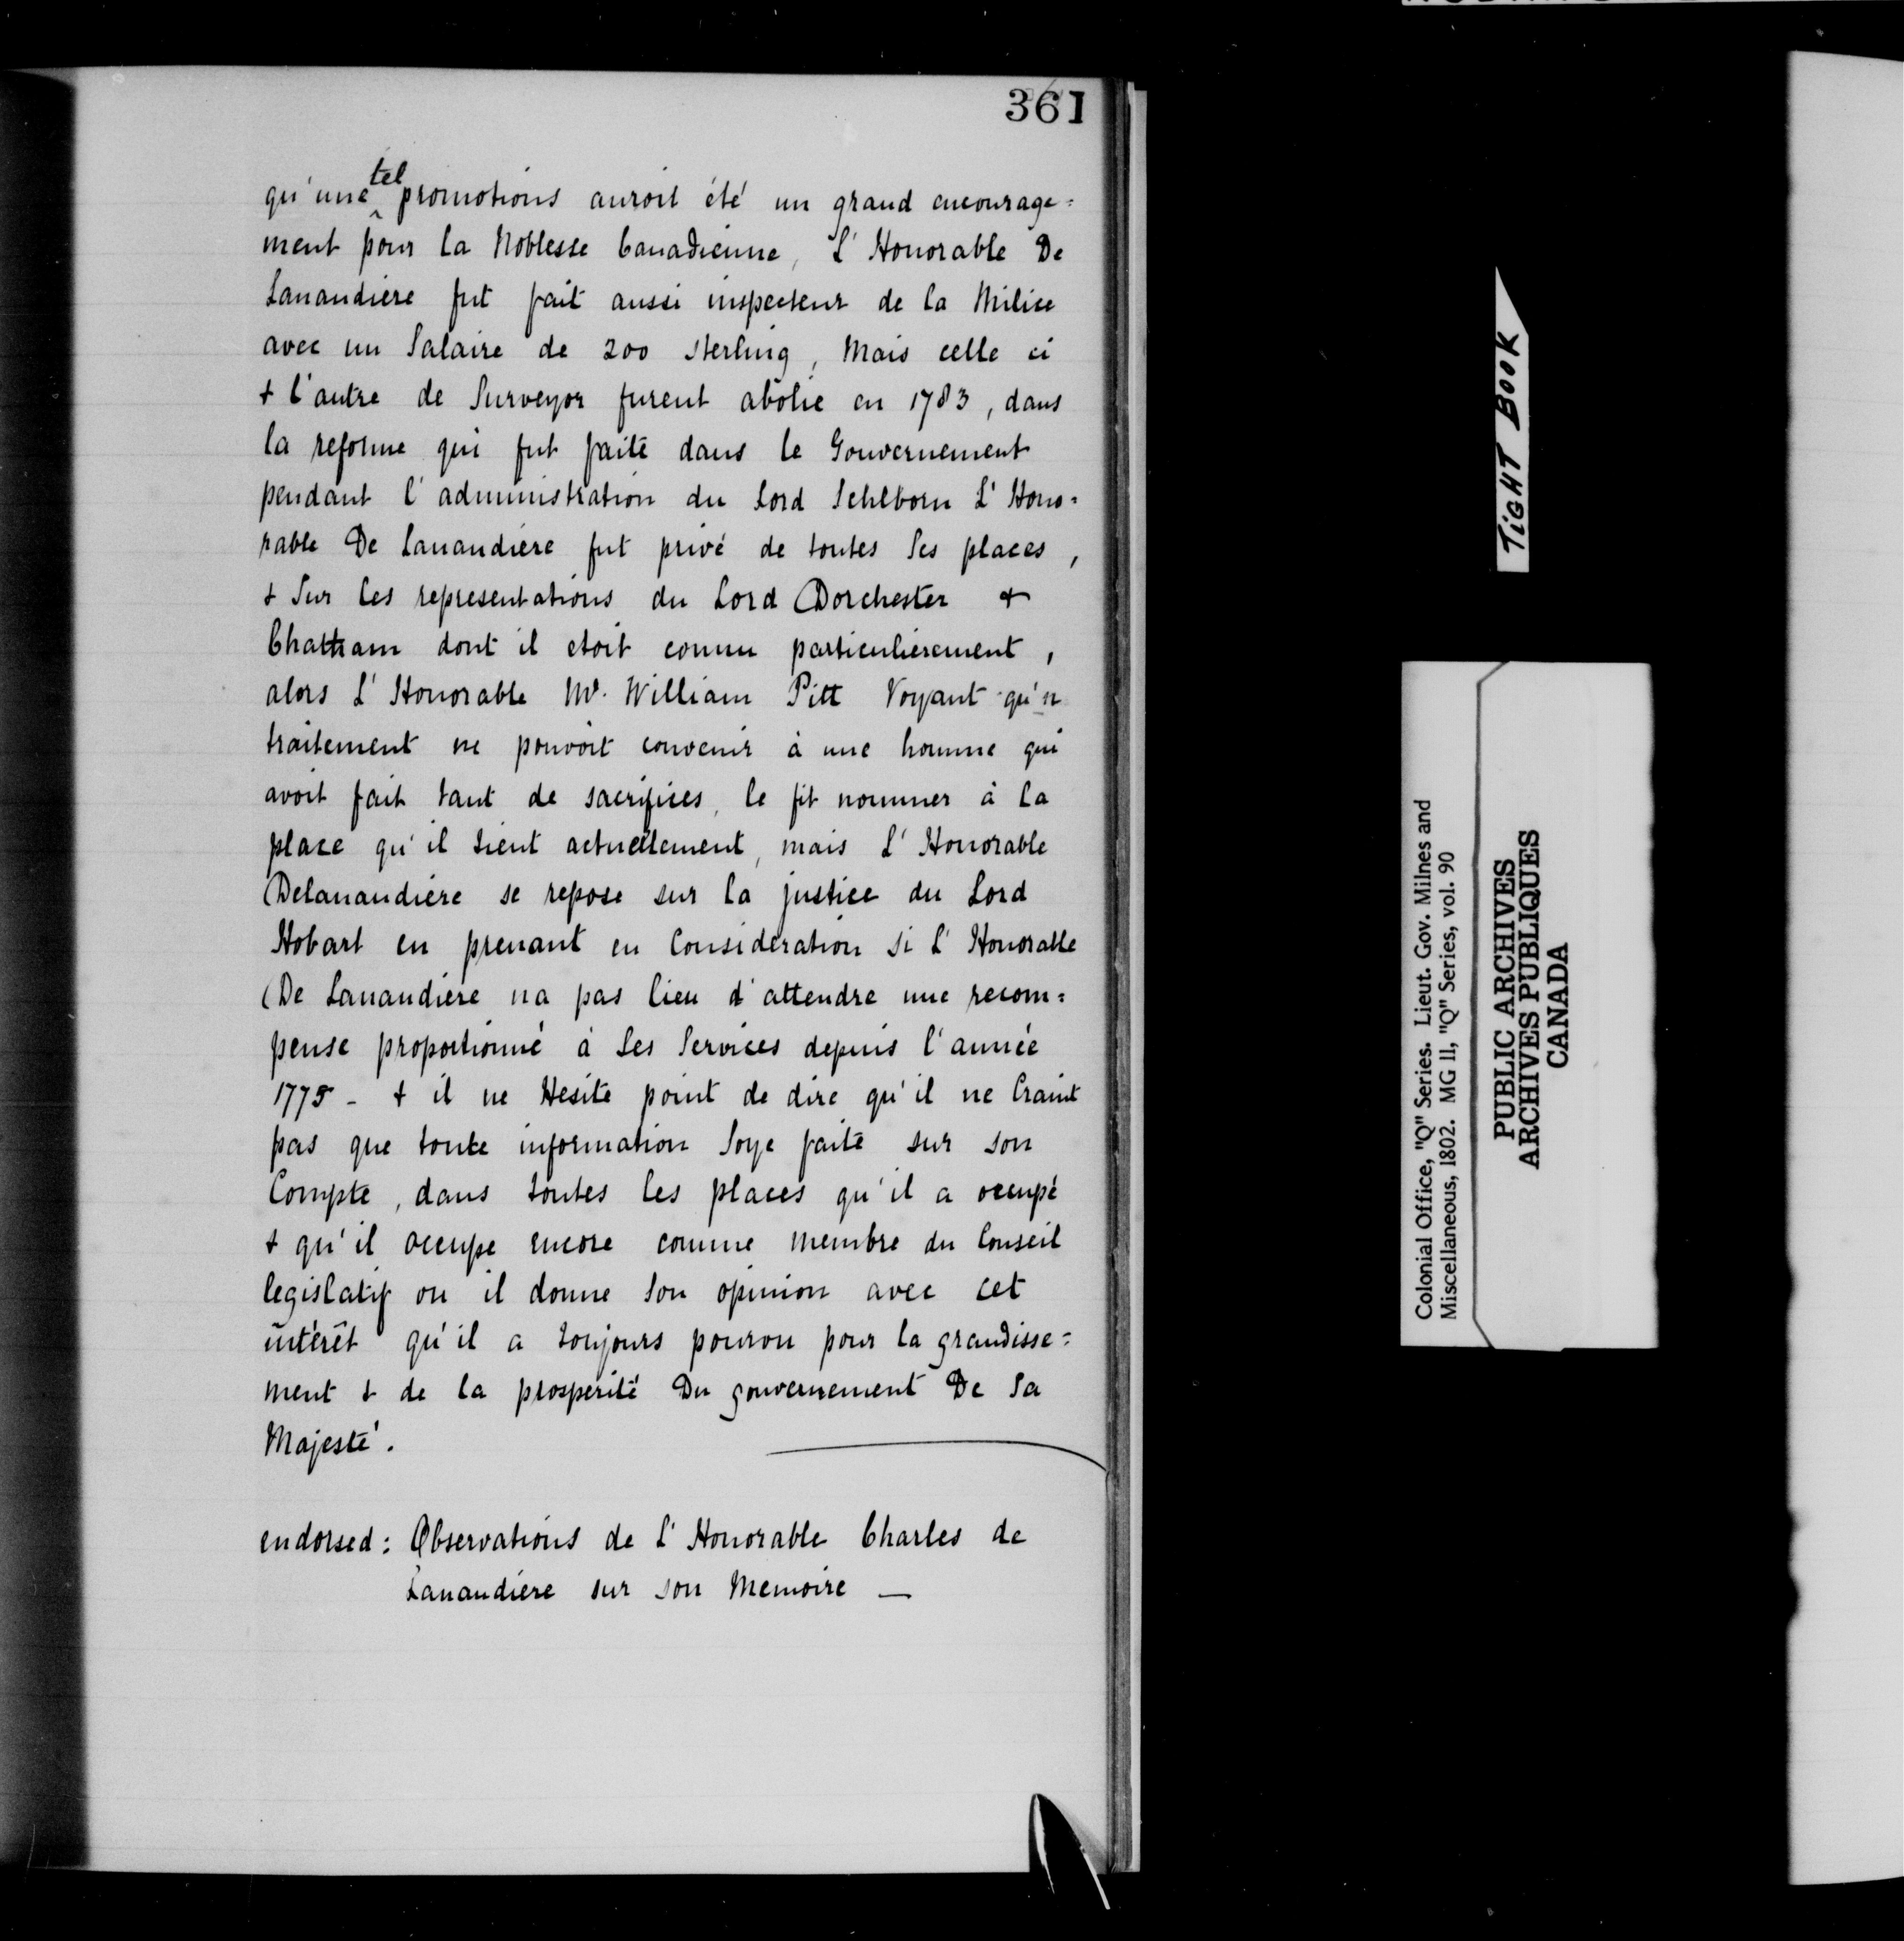 361
qu'une tel promotions auroit été un grand encourage=
ment pour la Noblesse Canadienne, L'Honorable De
Lanandiere fut fait aussi inspecteur de la Milice
avec un Salaire de 200 sterling, Mais celle ci
& l'autre de Surveyor furent abolie en 1783, dans
la reforme qui fut faite dans le Gouvernement
pendant l'administration du Lord Schlborn L'Hono=
rable De Lanandiere fut privé de toutes Ses places,
& Sur les representations du Lord Dorchester &
Chattam dont il etoit connu particulièrement,
alors L'Honorable Mr. William Pitt Voyant qu'n
traitement ne pouvoit convenir à une homme qui
avoit fait tant de sacrifices, le fit nommer à la
place qu'il tient actuellement, mais L'Honorable
Delanandiere se repose sur la justice du Lord
Hobart en prenant en Consideration Si L'Honorable
De Lanandiere na pas lieu d'attendre une recom=
pense proportionné à Ses Services depuis l'année
1775 - & il ne Hesite point de dire qu'il ne Craint
pas que toute information Soye faite sur son
Compte, dans toutes les places qu'il a occupé
& qu'il occupe encore comme membre du Conseil
legislatif ou il donne Son opinion avec cet
intérêt qu'il a toujours pour la grandisse=
ment & de la prosperité Du gouvernement De Sa
Majesté.
endorsed: Observations de L'Honorable Charles de
Lanandiere sur son Memoire —
TIGHT BOOK
Colonial Office, "Q" Series. Lieut. Gov. Milnes and
Miscellaneous, 1802. MG 11, "Q" Series, vol. 90
PUBLIC ARCHIVES
ARCHIVES PUBLIQUES
CANADA